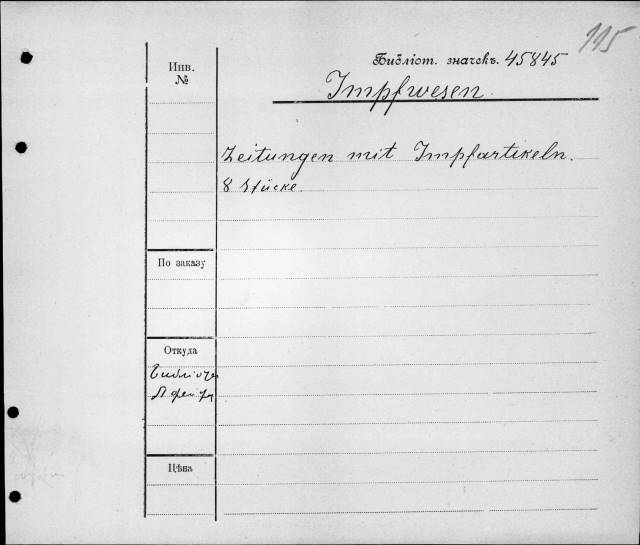 115
Библіот. значекъ. 45845
Impfwesen.
Инв.
№
Zeitungen mit Impfartikeln.
8 Stücke.
По заказу
Откуда
Цѣна